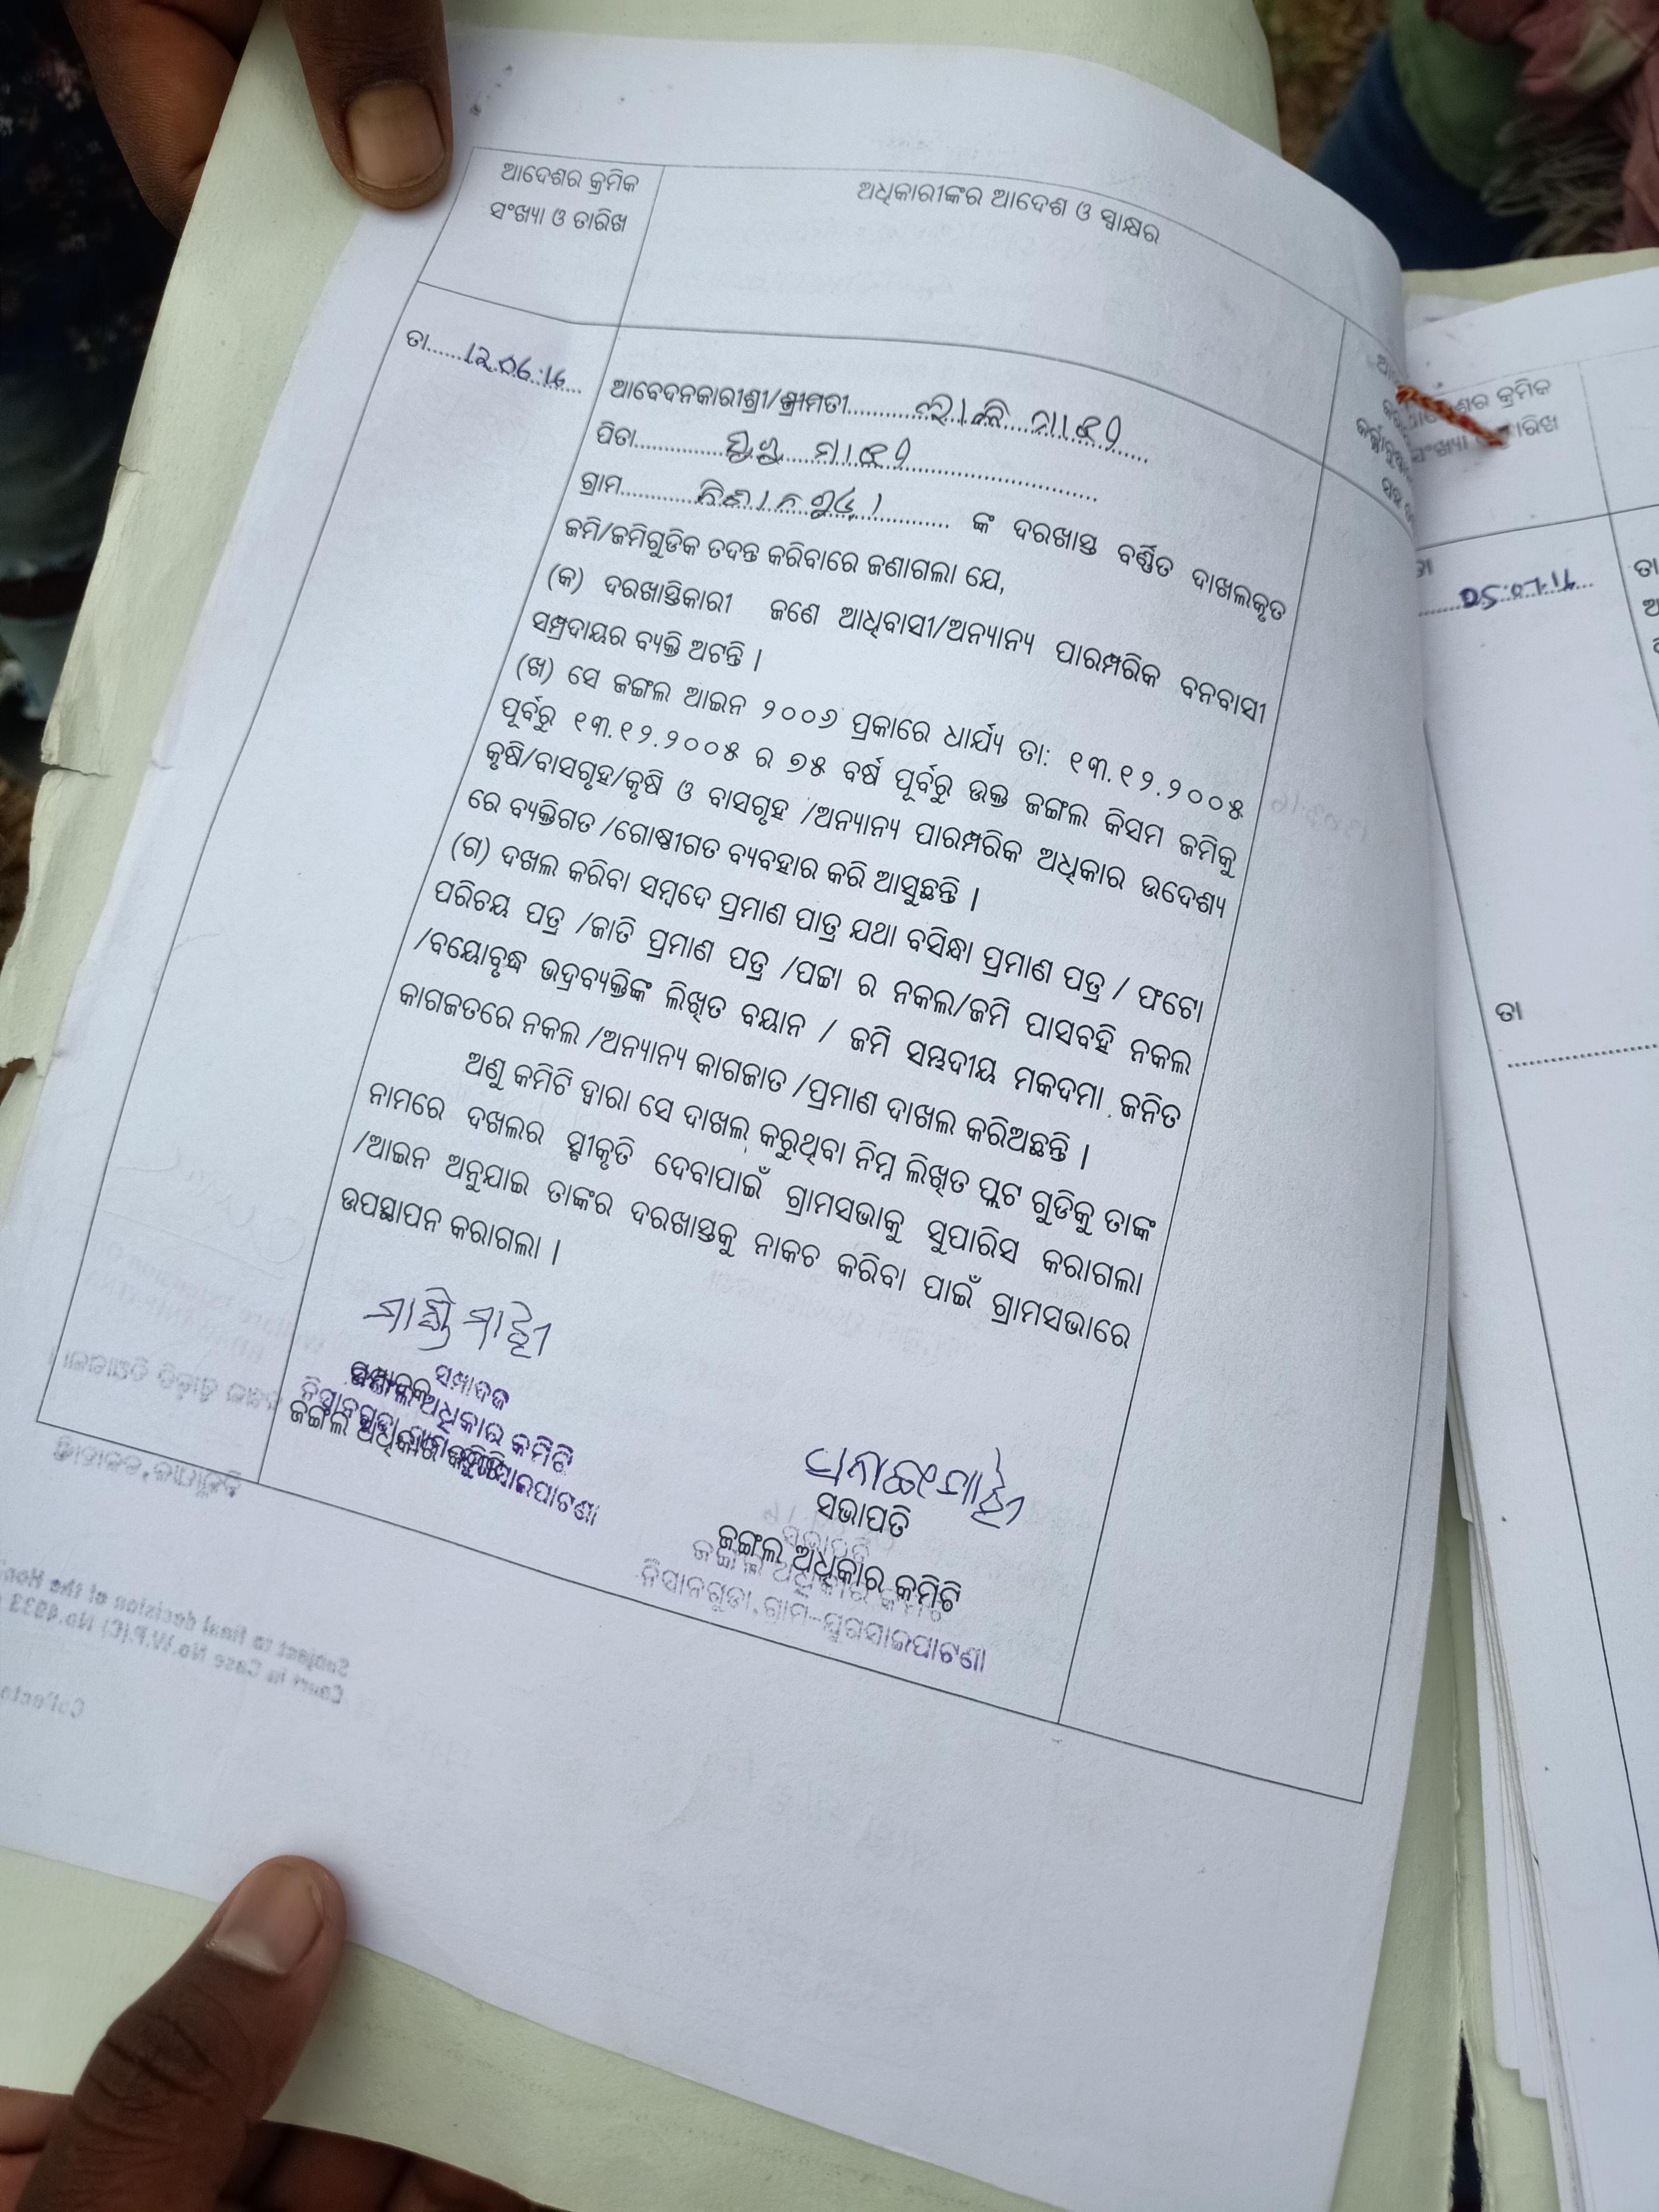 ଆଦେଶର କ୍ରମିକ
ସଂଖ୍ୟା ଓ ତାରିଖ
ଅଧିକାରୀଙ୍କର ଆଦେଶ ଓ ସ୍ୱାକ୍ଷର
ତା......12.06.16...
ଆବେଦନକାରୀଶ୍ରୀ/ଶ୍ରୀମତୀ.................... ମାଝୀ
ପିତା.................... ମାଝୀ....................
ଗ୍ରାମ........................................ ଙ୍କ ଦରଖାସ୍ତ ବର୍ଣ୍ଣିତ ଦାଖଲକୃତ
ଜମି/ଜମିଗୁଡିକ ତଦନ୍ତ କରିବାରେ ଜଣାଗଲା ଯେ,
(କ) ଦରଖାସ୍ତିକାରୀ ଜଣେ ଆଧିବାସୀ/ଅନ୍ୟାନ୍ୟ ପାରମ୍ପରିକ ବନବାସୀ
ସମ୍ପ୍ରଦାୟର ବ୍ୟକ୍ତି ଅଟନ୍ତି ।
(ଖ) ସେ ଜଙ୍ଗଲ ଆଇନ ୨୦୦୬ ପ୍ରକାରେ ଧାର୍ଯ୍ୟ ତା: ୧୩.୧୨.୨୦୦୫
ପୂର୍ବରୁ ୧୩.୧୨.୨୦୦୫ ର ୭୫ ବର୍ଷ ପୂର୍ବରୁ ଉକ୍ତ ଜଙ୍ଗଲ କିସମ ଜମିକୁ
କୃଷି/ବାସଗୃହ/କୃଷି ଓ ବାସଗୃହ /ଅନ୍ୟାନ୍ୟ ପାରମ୍ପରିକ ଅଧିକାର ଉଦେଶ୍ୟ
ରେ ବ୍ୟକ୍ତିଗତ /ଗୋଷ୍ଠୀଗତ ବ୍ୟବହାର କରି ଆସୁଛନ୍ତି ।
(ଗ) ଦଖଲ କରିବା ସମ୍ବଦେ ପ୍ରମାଣ ପାତ୍ର ଯଥା ବସିନ୍ଧା ପ୍ରମାଣ ପତ୍ର / ଫଟୋ
ପରିଚୟ ପତ୍ର /ଜାତି ପ୍ରମାଣ ପତ୍ର /ପଟ୍ଟା ର ନକଲ/ଜମି ପାସବହି ନକଲ
/ବୟୋବୃଦ୍ଧ ଭଦ୍ରବ୍ୟକ୍ତିଙ୍କ ଲିଖିତ ବୟାନ / ଜମି ସମ୍ଭଦୀୟ ମକଦମା ଜନିତ
କାଗଜତରେ ନକଲ /ଅନ୍ୟାନ୍ୟ କାଗଜାତ /ପ୍ରମାଣ ଦାଖଲ କରିଅଛନ୍ତି ।
ଅଣୁ କମିଟି ଦ୍ୱାରା ସେ ଦାଖଲ କରୁଥିବା ନିମ୍ନ ଲିଖିତ ପ୍ଲଟ ଗୁଡିକୁ ତାଙ୍କ
ନାମରେ ଦଖଲର ସ୍ୱୀକୃତି ଦେବାପାଇଁ ଗ୍ରାମସଭାକୁ ସୁପାରିସ କରାଗଲା
/ଆଇନ ଅନୁଯାଇ ତାଙ୍କର ଦରଖାସ୍ତକୁ ନାକଚ କରିବା ପାଇଁ ଗ୍ରାମସଭାରେ
ଉପସ୍ଥାପନ କରାଗଲା ।
ମାଝୀ
ସମ୍ପାଦକ
ଜଙ୍ଗଲ ଅଧିକାର କମିଟି
ସଭାପତି
ଜଙ୍ଗଲ ଅଧିକାର କମିଟି
ସଭାପତି
ଜଙ୍ଗଲ ଅଧିକାର କମିଟି
ନିସାନଗୁଡା, ଗ୍ରାମ-
କ୍ରମିକ
ତା
ତା